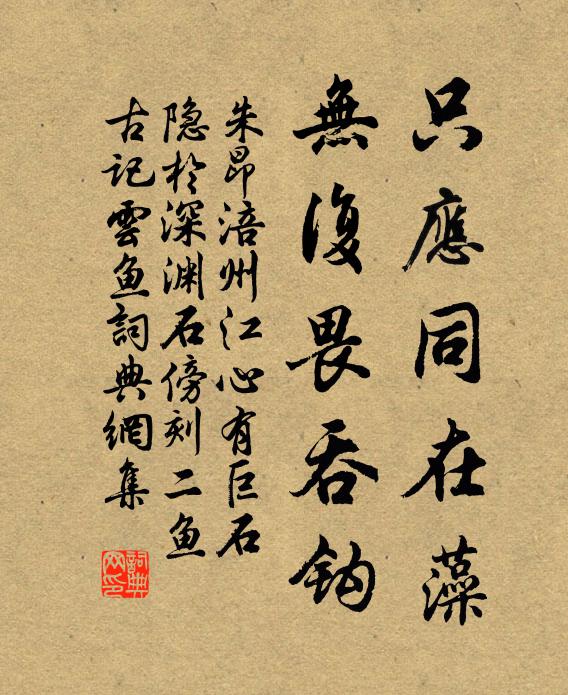 只應同在藻
無復畏吞钩
朱昂涪州江心有巨石
隐於深渊石傍刻二鱼
古記雲魚詞典網集
詞典网印